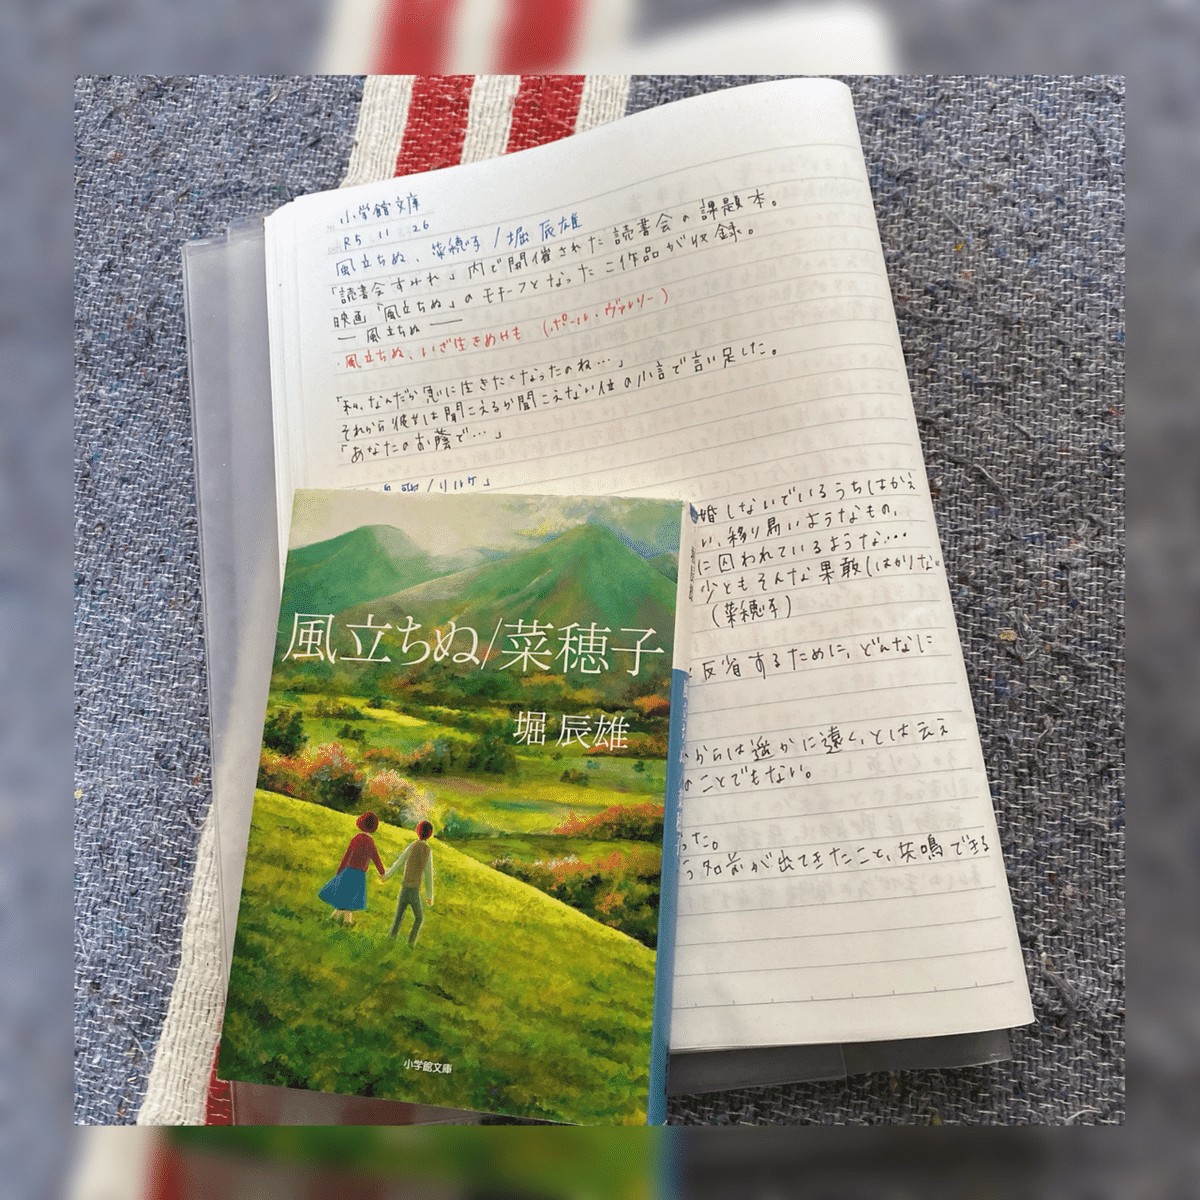 小学館文庫
R5 11 26
風立ちぬ、菜穂子/堀辰雄
「読書会すみれ」内で開催された読書会の課題本。
映画「風立ちぬ」のモチーフとなった二作品が収録。
― 風立ちぬ ―
・風立ちぬ、いざ生きめやも (ポール・ヴァレリー)
「私、なんだか急に生きたくなったのね…」
それから彼女は聞こえるか聞こえない位の小言で言い足した。
「あなたのお蔭で…」
婚しないでいるうちはかえ
い、移り易いようなもの、
に囚われているような…
少ともそんな果敢(はかりな
(菜穂子)
反省するために、どんなに
からは遥かに遠く、とは云え
のことでもない。
った。
名前が出てきたこと、共鳴できる
風立ちぬ/菜穂子
堀 辰雄
小学館文庫